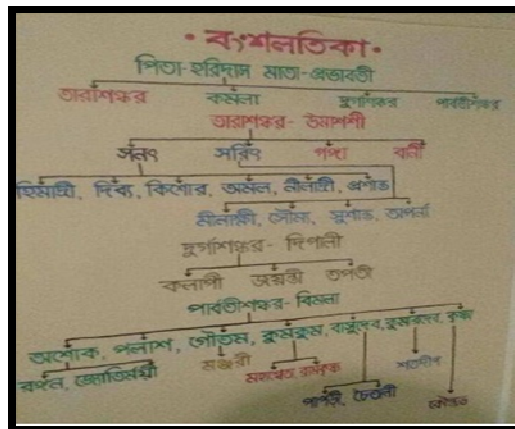 • বংশলতিকা •
পিতা-হরিদাস মাতা-প্রভাবতী
তারাশঙ্কর কমলা দুর্গাশঙ্কর পার্বতীশঙ্কর
তারাশঙ্কর - উমাশশী
সনৎ সরিৎ গঙ্গা বানী
হিমাদ্রী, দিব্য, কিশোর, অমল, নীলাদ্রী, প্রশান্ত
মীনাক্ষী, সৌম্য, সুশান্ত, অপর্না
দুর্গাশঙ্কর - দিপালী
কলাপী জয়ন্তী তপতী
পার্বতীশঙ্কর - বিমলা
অশোক, পলাশ, গৌতম, কুমকুম, বাসুদেব,
জ্যোতির্ময়ী মঞ্জরী
চৈতালী